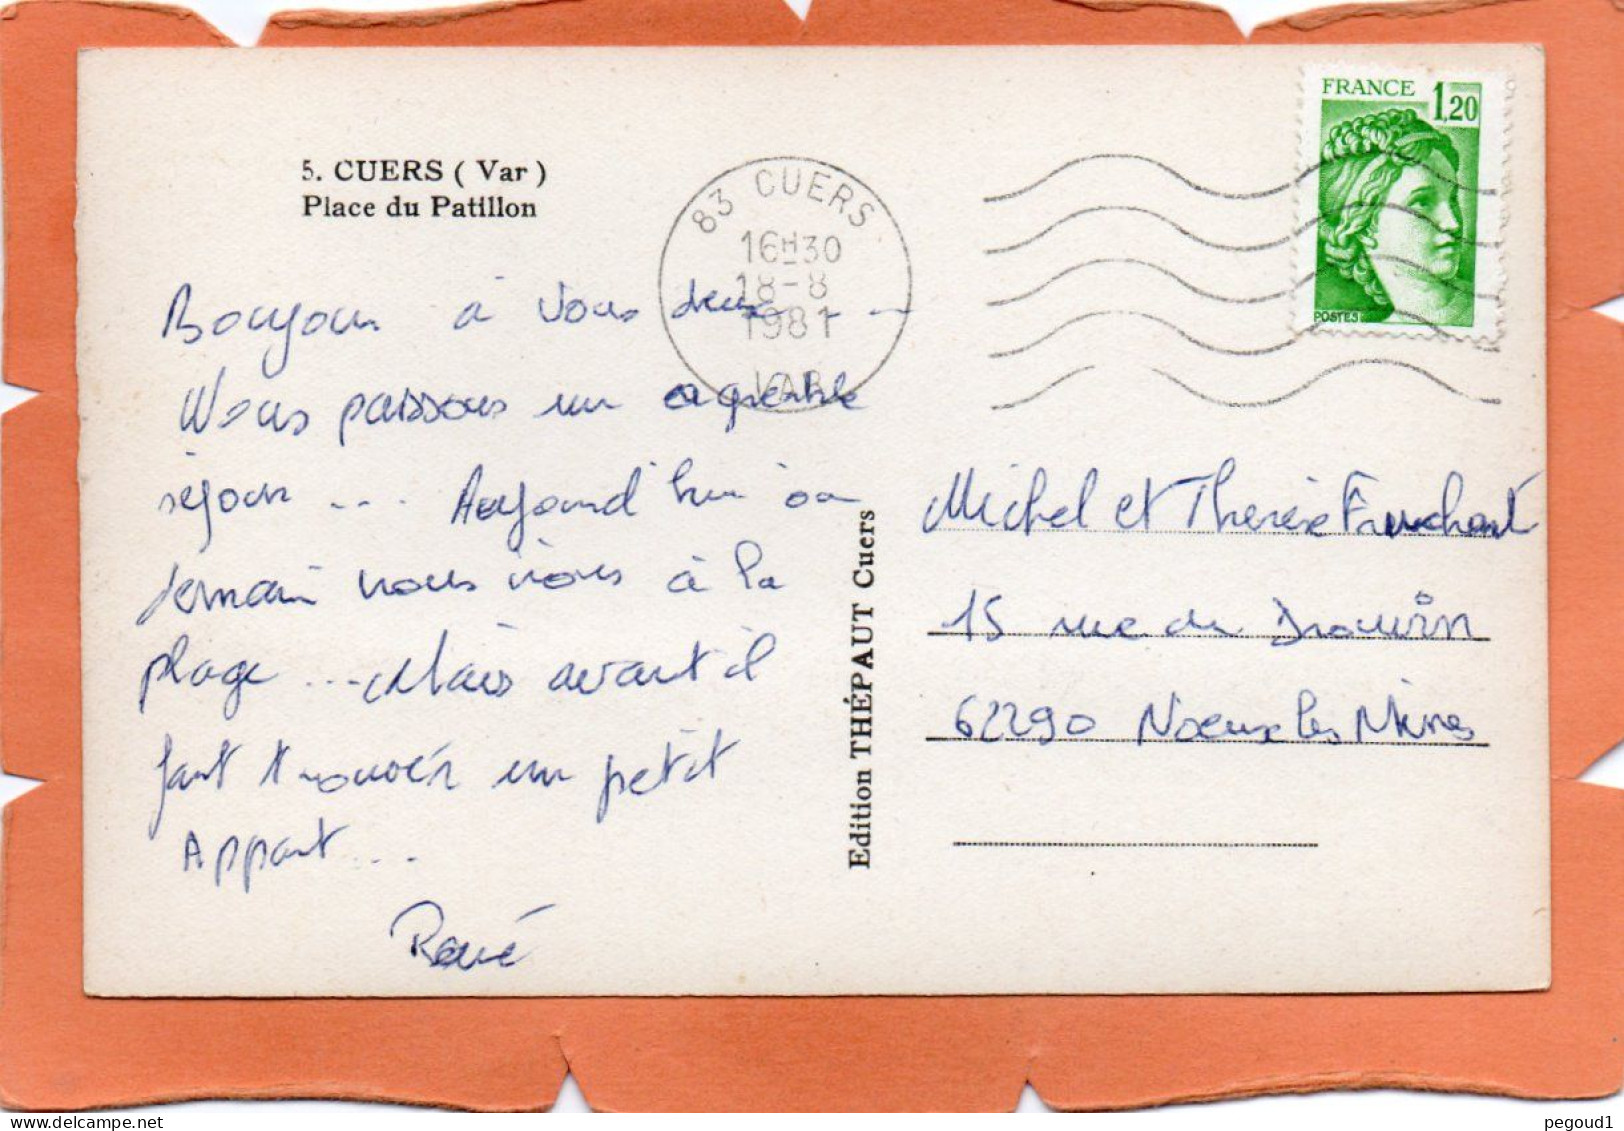 5. CUERS ( Var )
Place du Patillon
83 CUERS
16H30
18-8
1981
VAR
FRANCE 1,20
POSTES
Bonjour à vous deux - -
Nous passons un agréable
séjour ... Aujourd'hui ou
demain nous irons à la
plage ... Mais avant il
faut trouver un petit
Appart ...
René
Edition THÉPAUT Cuers
Michel et Thérèse
15 rue du Drouvin
62290 Noeux les Mines
pegoud1